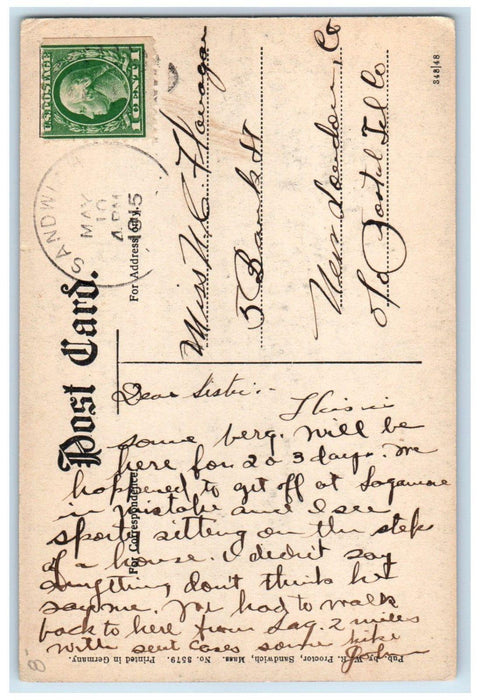 U.S. POSTAGE
1 CENT 1
SANDWI
MAY
10
4 PM
1915
Post Card.
For Address only.
For Correspondence.
Miss M. C. Flanagan
5 Bank St
New London, Co
c/o Postal Tel Co
Dear Sister:-
This is
some berg. Will be
here for 2 o 3 days. We
happened to get off at Sagamore
in mistake and I see
sporty sitting on the steps
of a house. I didn't say
anything don't think he
saw me. We had to walk
back to here from Sag. 2 miles
with suit cases some hike
John
Pub. by W. R. Proctor, Sandwich, Mass. No. 8579. Printed in Germany.
348|48
8-